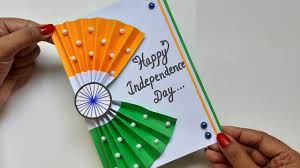 Happy
Independence
Day...